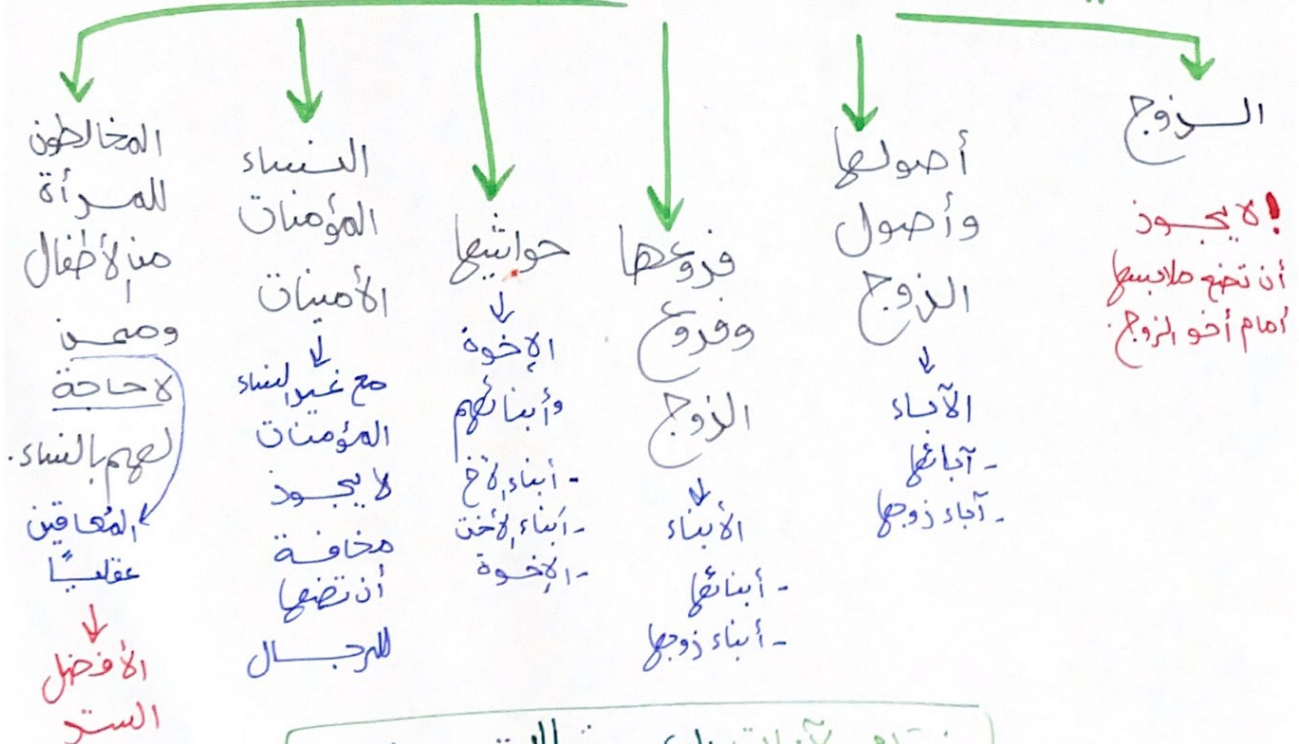 الزوج
! لا يجوز
أن تضع ملابسها
أمام أخو الزوج.
أصولها
وأصول
الزوج
الآباء
- آبائها
- آباء زوجها
فروعها
وفروع
الزوج
الأبناء
- أبنائها
- أبناء زوجها
حواشيها
الإخوة
وأبنائهم
- أبناء الأخ
- أبناء الأخت
- الإخوة
النساء
المؤمنات
الأمينات
مع غير النساء
المؤمنات
لا يجوز
مخافة
أن تصفها
للرجال
المخالطون
للمرأة
من الأطفال
وممن
لا حاجة
لهم بالنساء.
المُعاقين
عقليًا
الأفضل
الستر